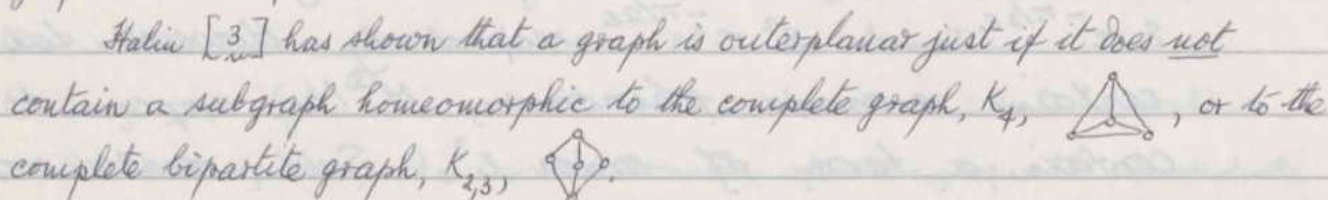 Halin [3] has shown that a graph is outerplanar just if it does not
contain a subgraph homeomorphic to the complete graph, K4, , or to the
complete bipartite graph, K2,3, .